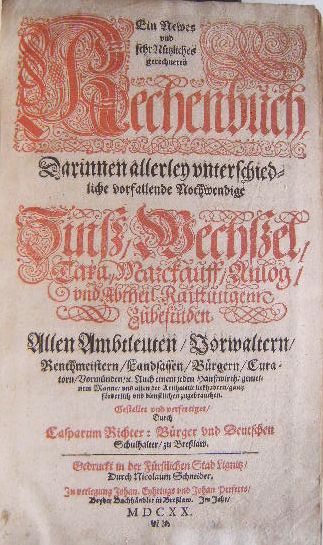 Ein Newes
vnd
sehr Nützliches
gerechnetes
Rechenbuch,
Darinnen allerley vnterschied-
liche vorfallende Nothwendige
Zinß / Wechßel /
Tara, Marckauff, Anlog /
vnd Abtheil Raittungenn
Zubefinden.
Allen Ambtleuten / Vorwaltern /
Rentmeistern / Landsassen / Bürgern / Cura-
torn / Vormünden / ꝛc. Auch einem jeden Haußwirth / gemei-
nem Manne vnd allen der Arithmetic liebhabern / gantz
förderlich vnd dienstlichen zugebrauchen.
Gestellet vnd verfertiget /
Durch
Casparum Richter: Bürger vnd Deutschen
Schulhalter / zu Breßlaw.
Gedruckt in der Fürstlichen Stad Lignitz /
Durch Nicolaum Schneider,
In verlegung Johan. Eyhrings vnd Johan Perferts /
Beyder Buchhändler in Breßlaw. Im Jahr /
MDCXX.